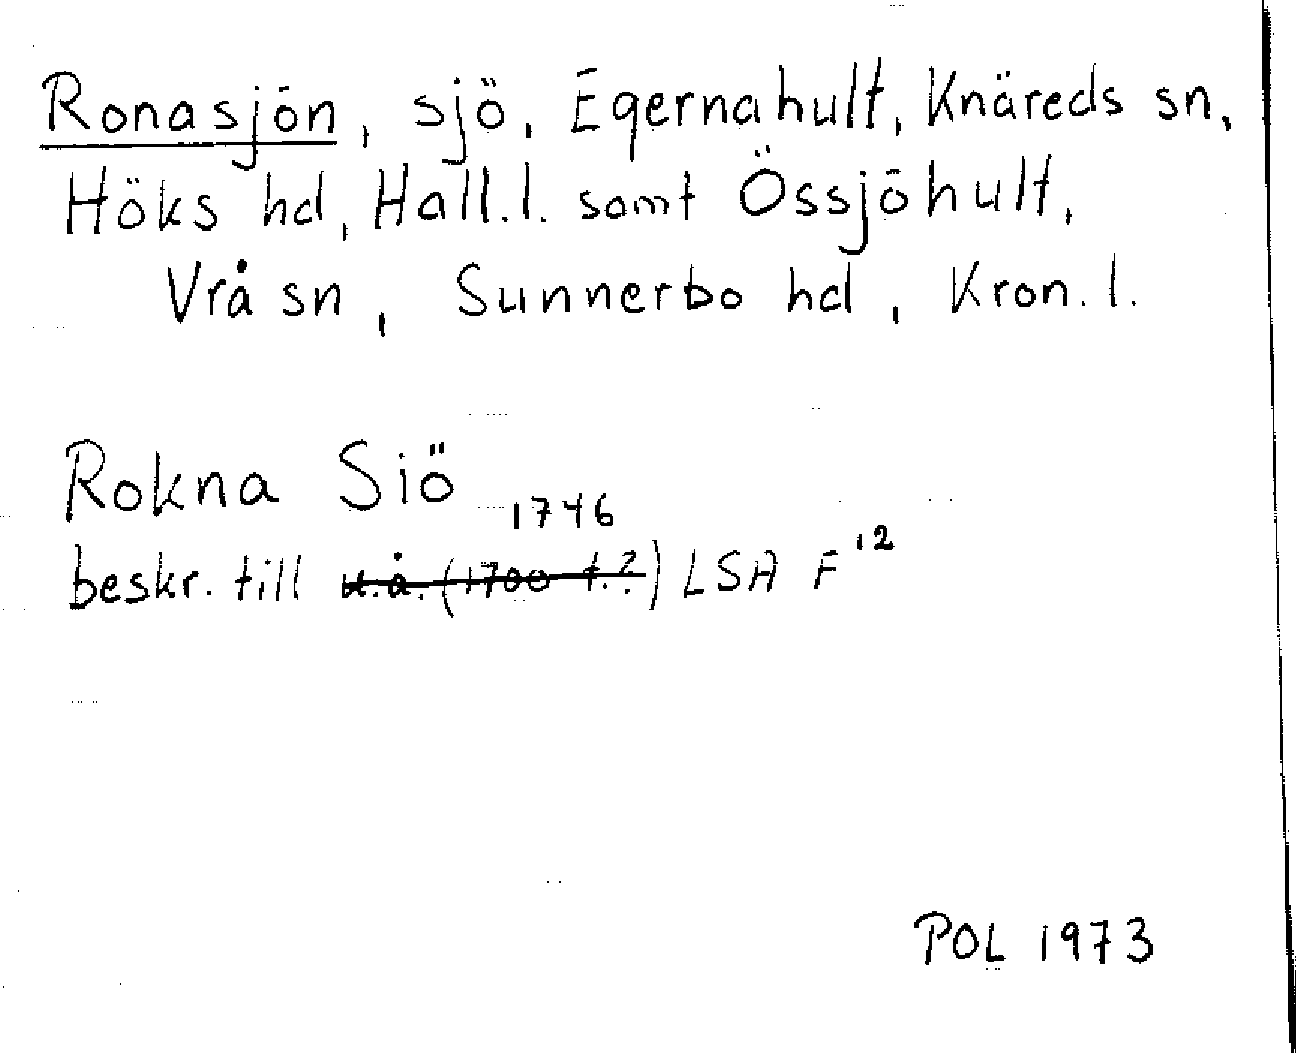 Ronasjön, sjö, Egernahult, Knäreds sn,
Höks hd, Hall.l. samt Össjöhult,
Vrå sn, Sunnerbo hd, Kron.l.
Rokna Siö
1746
beskr. till u.å. (1700-t.?) LSA F 12
POL 1973